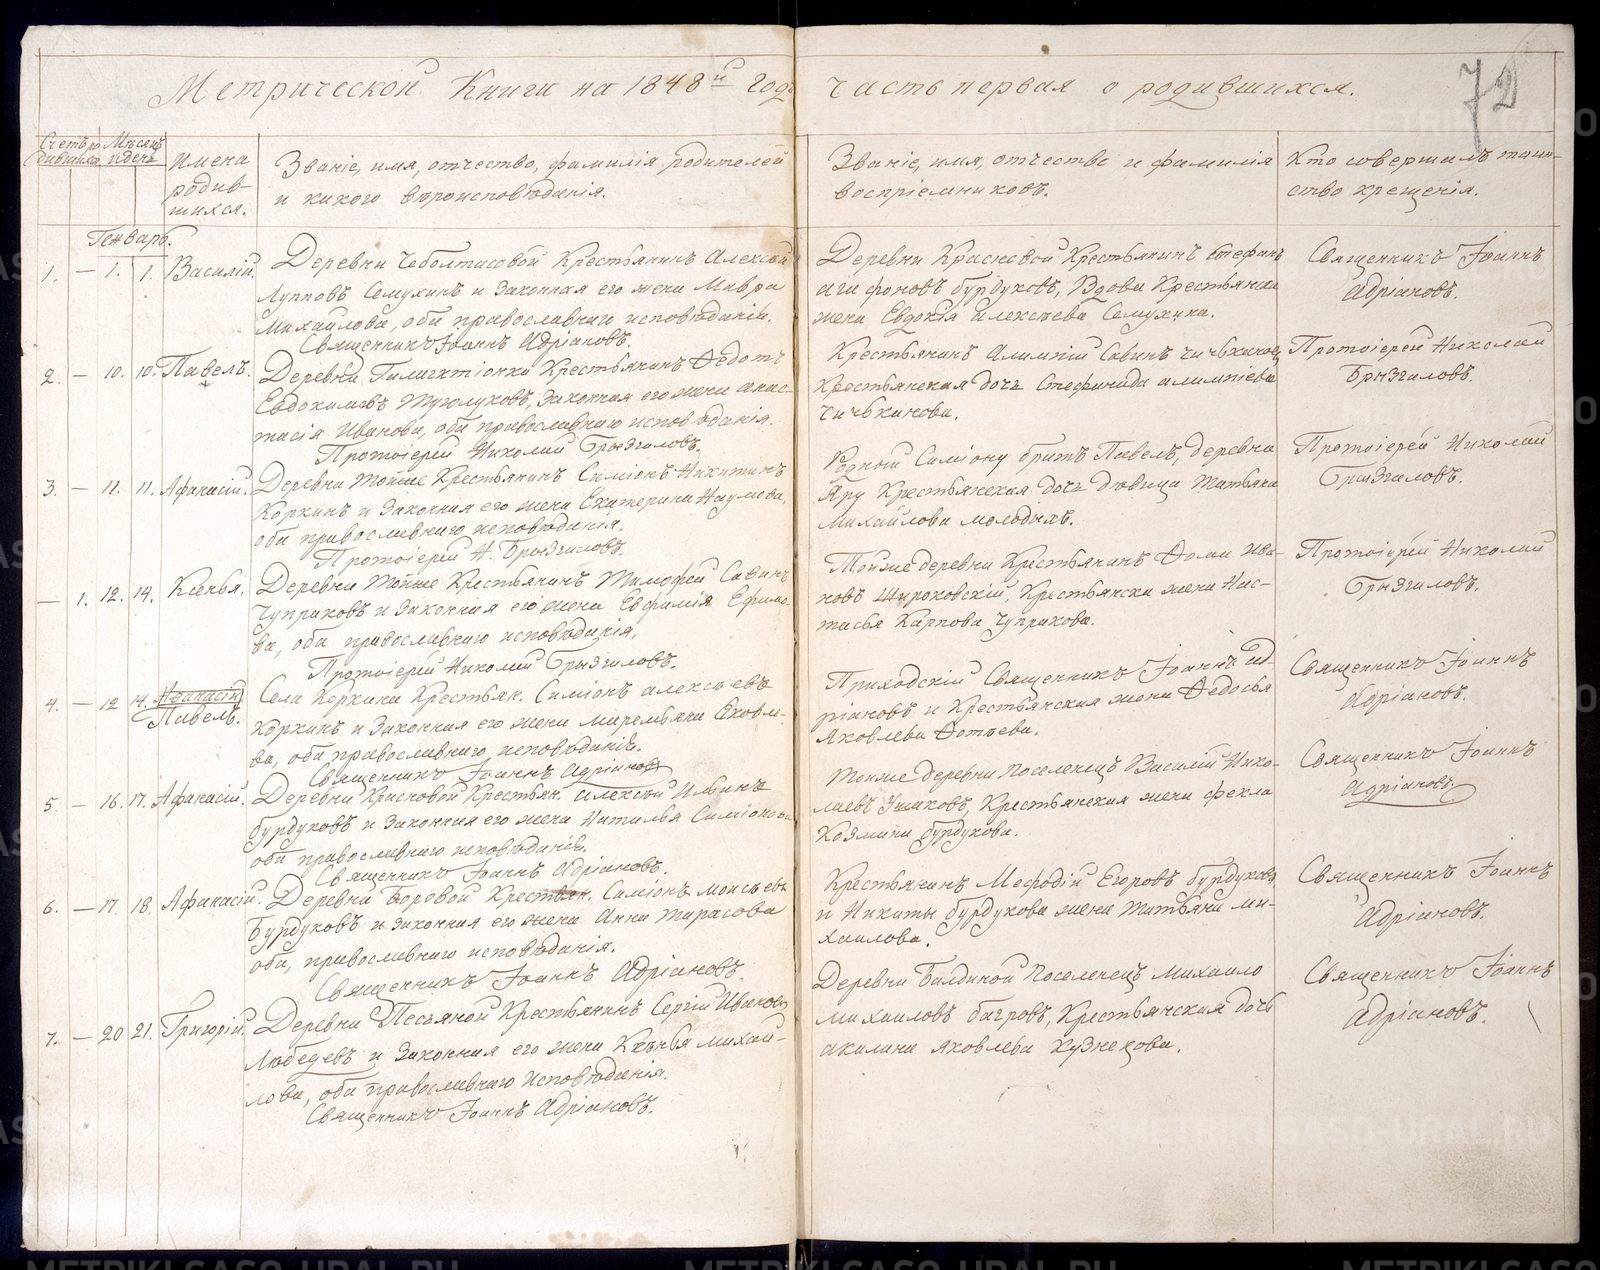 Метрической Книги на 1848й годъ
часть первая о родившихся.
72
Счетъ родившихся
Мѣсяцъ и день
Имена родившихся.
Званіе, имя, отчество, фамилія родителей
и какого вѣроисповѣданія.
Званіе, имя, отчество и фамилія
воспріемниковъ.
Кто совершалъ таин-
ство крещенія.
Генварь.
1. — 1. 1. Василій.
Деревни Крестьянинъ Алексѣй
Лупповъ Семухинъ и законная его жена Мавра
Михайлова, оба православнаго исповѣданія.
Священникъ Іоаннъ Адріановъ.
Деревни Красновой Крестьянинъ Стефанъ
Агафоновъ Бурдуковъ, Вдова Крестьянская
жена Евдокія Алексѣева Семухина.
Священникъ Іоаннъ
Адріановъ.
2. — 10. 10. Павелъ.
Деревни Крестьянинъ Ѳедотъ
Евдокимовъ законная его жена Анас-
тасія Иванова, оба православнаго исповѣданія.
Протоіерей Николай Брызгаловъ.
Крестьянинъ Алимпій Савинъ
Крестьянская дочь Стефанида Алимпіева
Протоіерей Николай
Брызгаловъ.
3. — 11. 11. Афанасій.
Деревни тойже Крестьянинъ Симіонъ Никитинъ
Коркинъ и законная его жена Екатерина Наумова,
оба православнаго исповѣданія.
Протоіерей Н. Брызгаловъ.
Родной Симіону братъ Павелъ, деревни
Яру Крестьянская дочь дѣвица Татьяна
Михайлова Молодыхъ.
Протоіерей Николай
Брызгаловъ.
— 1. 12. 14. Ксенья.
Деревни тойже Крестьянинъ Тимофей Савинъ
Чупраковъ и законная его жена Евфимія Ефимо-
ва, оба православнаго исповѣданія.
Протоіерей Николай Брызгаловъ.
Тойже деревни Крестьянинъ Фома Ива-
новъ Широковскій, Крестьянска жена Нас-
тасья Карпова Чупракова.
Протоіерей Николай
Брызгаловъ.
4. — 12 14. Афанасій
Павелъ.
Села Коркина Крестьян. Симіонъ Алексѣевъ
Коркинъ и законная его жена Миремьяна Яковле-
ва, оба православнаго исповѣданія.
Священникъ Іоаннъ Адріановъ
Приходскій Священникъ Іоаннъ Ад-
ріановъ и Крестьянская жена Ѳедосья
Яковлева Фотѣева.
Священникъ Іоаннъ
Адріановъ.
5. — 16. 17. Афанасій.
Деревни Красновой Крестьян. Алексѣй Ильинъ
Бурдуковъ и законная его жена Наталья Симіонова
оба православнаго исповѣданія.
Священникъ Іоаннъ Адріановъ.
Тойже деревни Поселенецъ Василій Нико-
лаевъ Ушаковъ, Крестьянская жена Фекла
Козмина Бурдукова.
Священникъ Іоаннъ
Адріановъ.
6. — 17. 18. Афанасій.
Деревни Боровой Крестьян. Симіонъ Моисѣевъ
Бурдуковъ и законная его жена Анна Тарасова
оба, православнаго исповѣданія.
Священникъ Іоаннъ Адріановъ.
Крестьянинъ Мефодій Егоровъ Бурдуковъ
и Никиты Бурдукова жена Татьяна Ми-
хаилова.
Священникъ Іоаннъ
Адріановъ.
7. — 20 21. Григорій.
Деревни Песьяной Крестьянинъ Сергій Ивановъ
Лебедевъ и законная его жена Ксенья Михай-
лова, оба православнаго исповѣданія.
Священникъ Іоаннъ Адріановъ.
Деревни Балдиной Поселенецъ Михаило
Михаиловъ Багровъ, Крестьянская дочь
Акилина Яковлева Кузнецова.
Священникъ Іоаннъ
Адріановъ.
METRIKI.GASO-URAL.RU